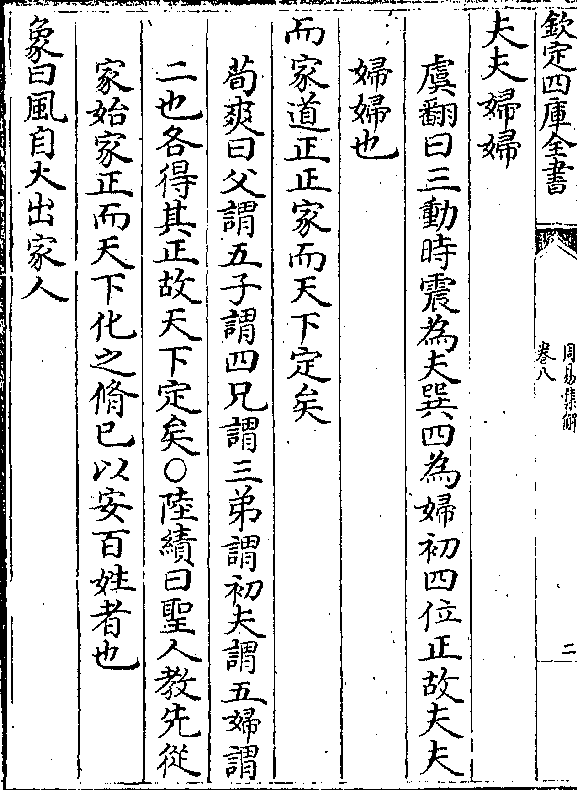 欽定四庫全書
周易集解
卷八
二
夫夫婦婦
虞翻曰三動時震為夫巽四為婦初四位正故夫夫
婦婦也
而家道正正家而天下定矣
荀爽曰父謂五子謂四兄謂三弟謂初夫謂五婦謂
二也各得其正故天下定矣○陸績曰聖人教先從
家始家正而天下化之脩己以安百姓者也
象曰風自火出家人